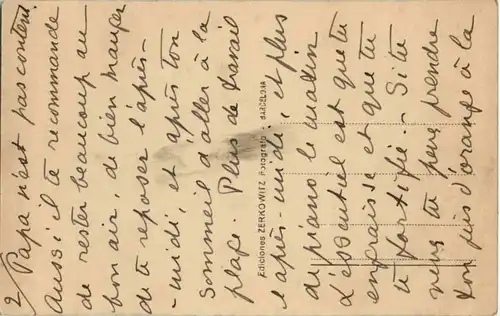 2/ Papa n'est pas content.
Aussi il te recommande
de rester beaucoup au
bon air, de bien manger
de te reposer l'après-
-midi, et après ton
sommeil d'aller à la
plage. Plus de travail
l'après-midi, et plus
de piano le matin
L'essentiel est que tu
engraisse et que tu
te fortifie. - Si tu
veux tu peux prendre
ton jus d'orange à la
Ediciones ZERKOWITZ Fotógrafo - BARCELONA